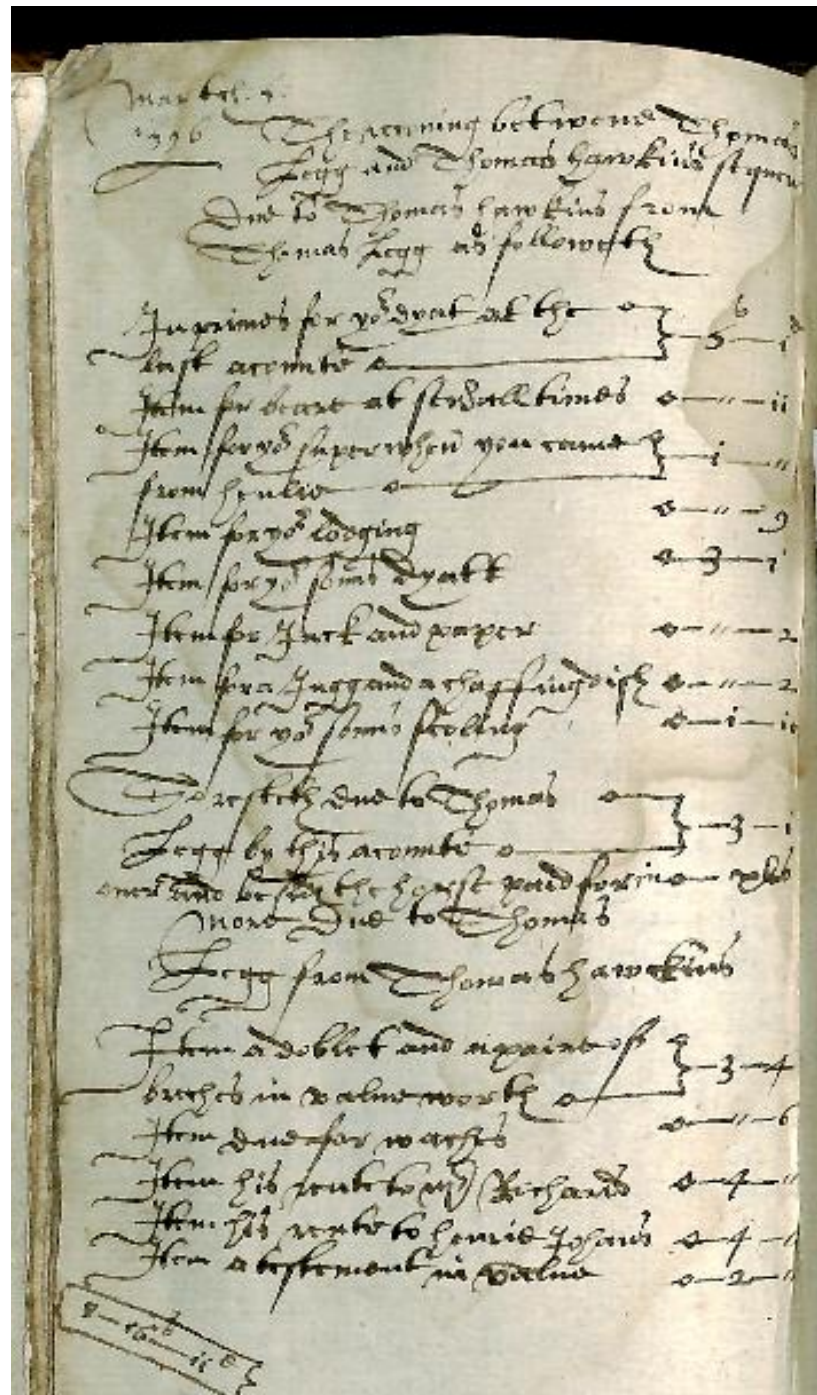 March. 7.
1596 The recninng betwene Thomas
Legg and Thomas hawkins
Due to Thomas hawkins from
Thomas Legg as followeth
Inprimes for yor dyat at the o
last acounte o 6
Item for beare at severall times o — " — ii
Item for yor super when you came
from henlie o — i — "
Item for yor lodging o — " — 9
Item for yor sonns dyatt o — 3 —
Item for Inck and paper o — " — 2
Item for a Jugg and a chaffing dish o — " — 2
Item for yor sonns scoling o — i —
So resteth due to Thomas o
Legg by this acounte o 3 —
over and beside the horse paid for
More Due to Thomas
Legg from Thomas hawckins
Item a doblet and a paire of
breches in value worth o 3 — 4
Item due for waches o — " — 6
Item his rente to Richards o — 4 — "
Item his rente to henrie Johans o — 4 — "
Item a testement in value o — 2 — "